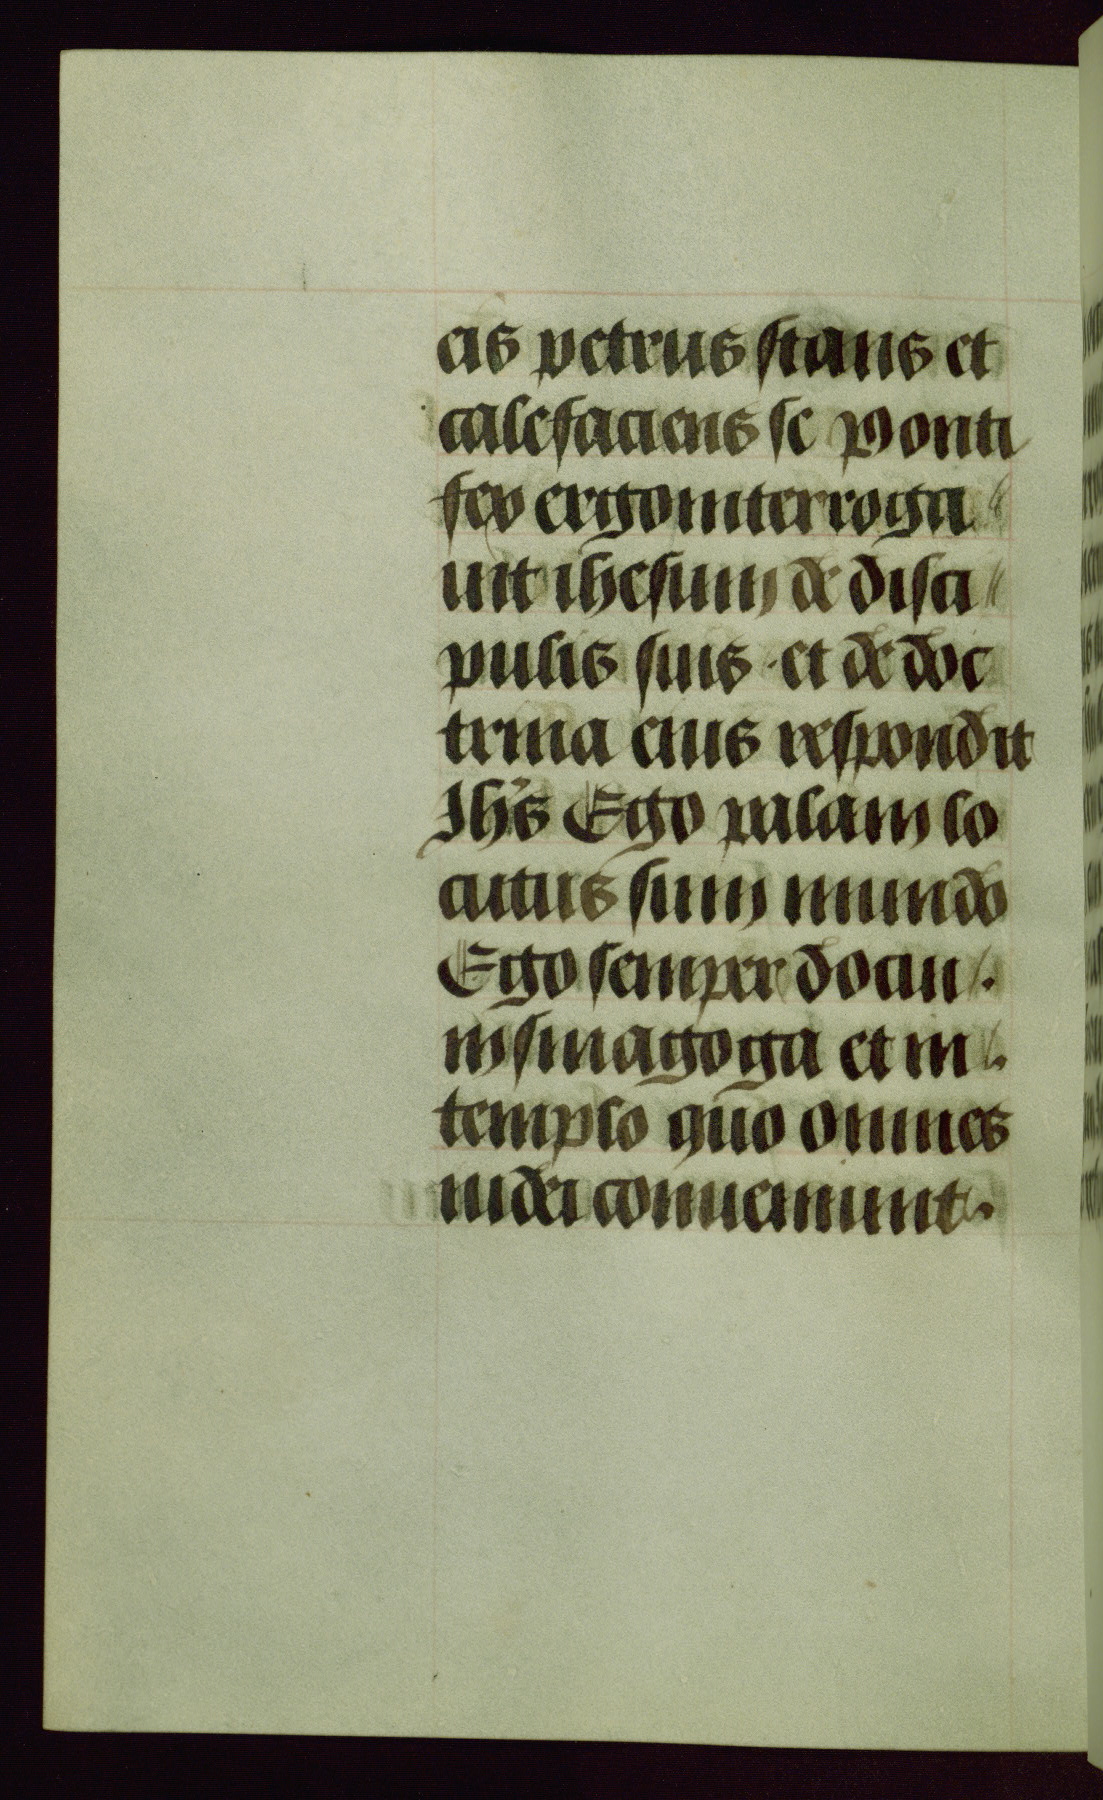 eis petrus stans et
calefaciens se Ponti
fex ergo interroga
uit ihesum de disci
pulis suis · et de doc
trina eius respondit
Ihs Ego palam lo
cutus sum mundo
Ego semper docui .
in sinagoga et in .
templo quo omnes
iudei conueniunt .